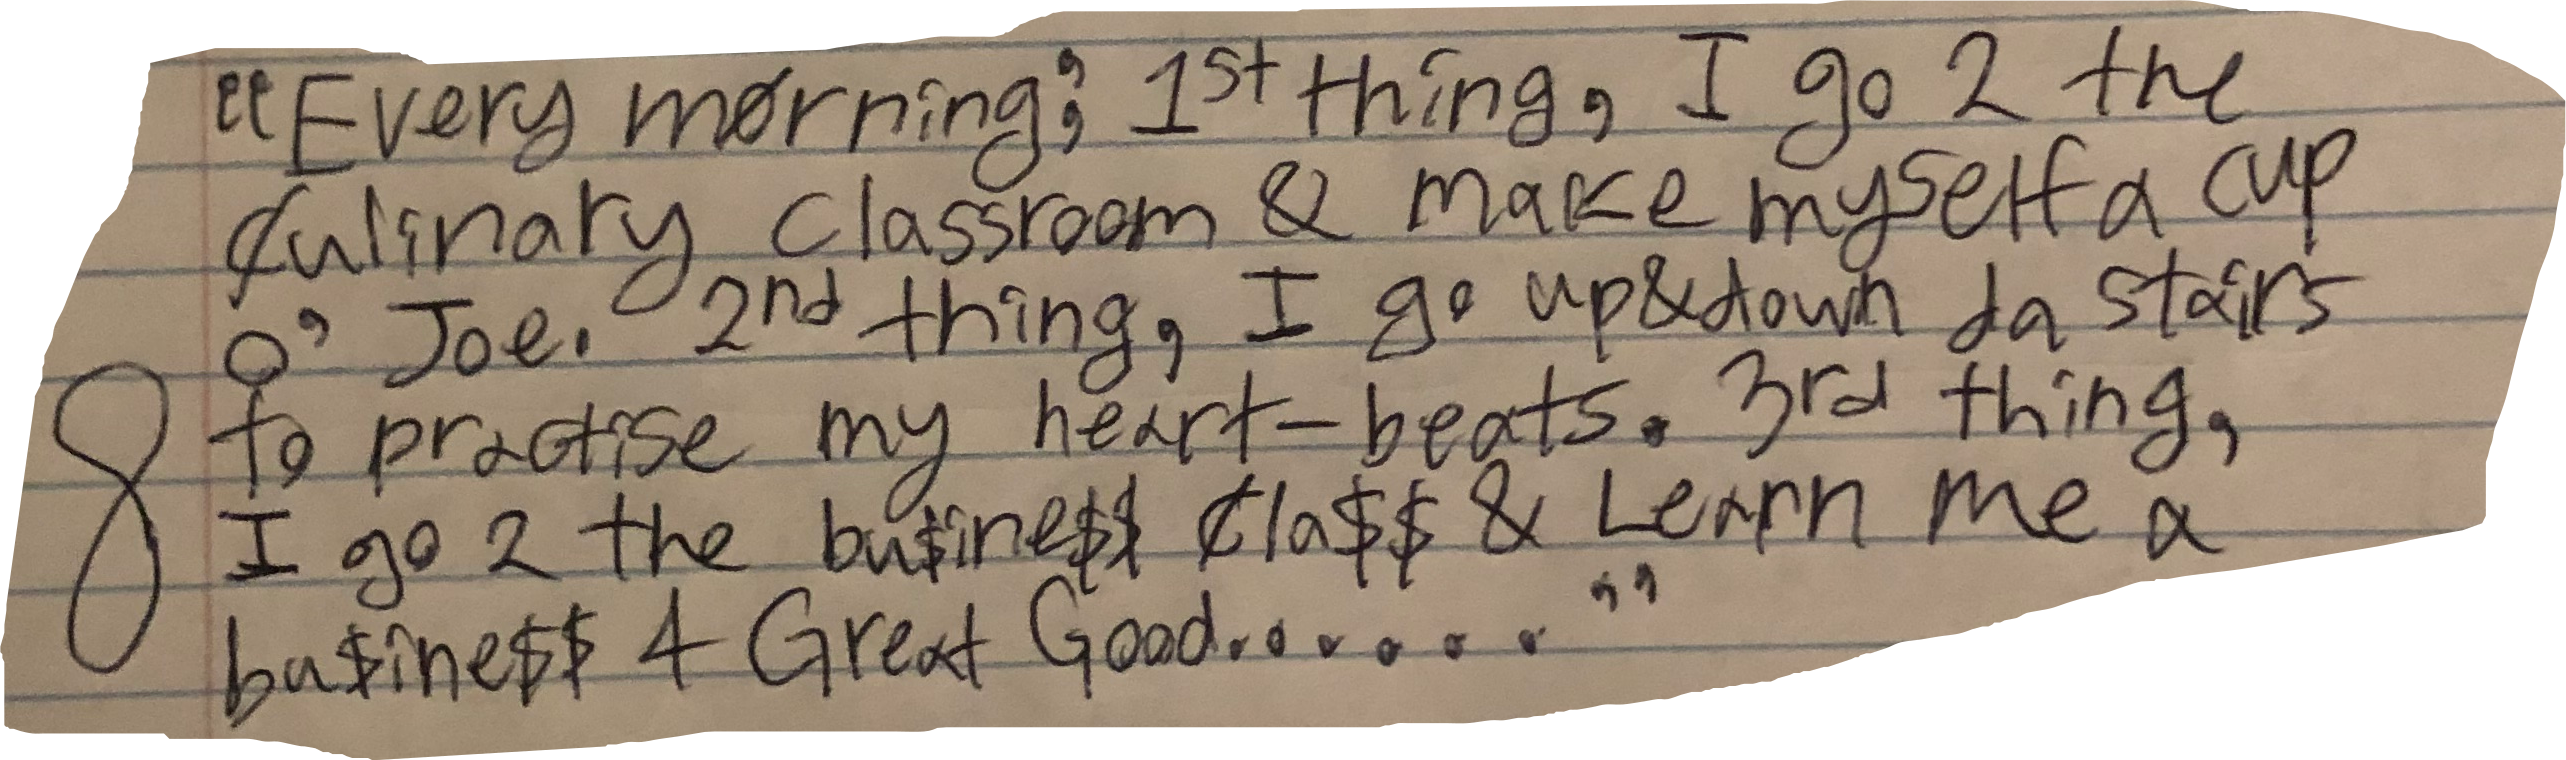 “Every mørning; 1st thing, I go 2 the
₵ulinary classroom & make myself a cup
o’ Joe. 2nd thing, I go up&down da stairs
to practise my heart-beats. 3rd thing,
I go 2 the bu$ine$$ ₵la$$ & Learn me a
bu$ine$$ 4 Great Good......”